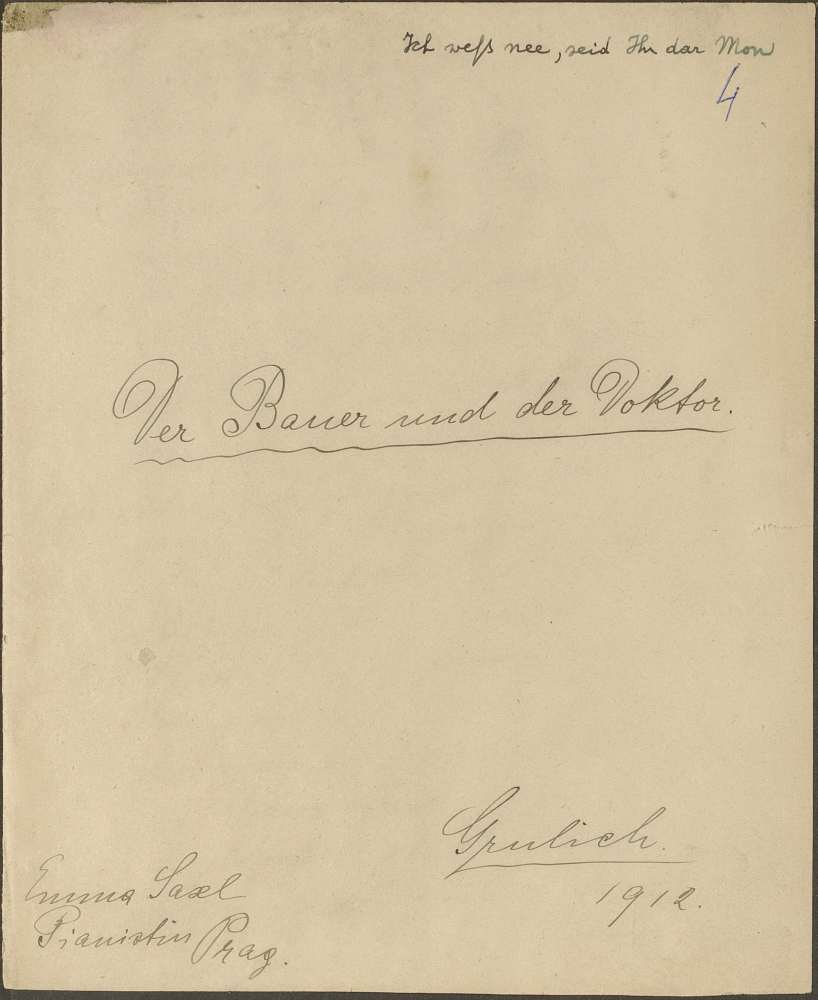 Ich weß nee, seid Ihr dar Mon
4
Der Bauer und der Doktor.
Grulich.
1912.
Emma Saxl
Pianistin Prag.